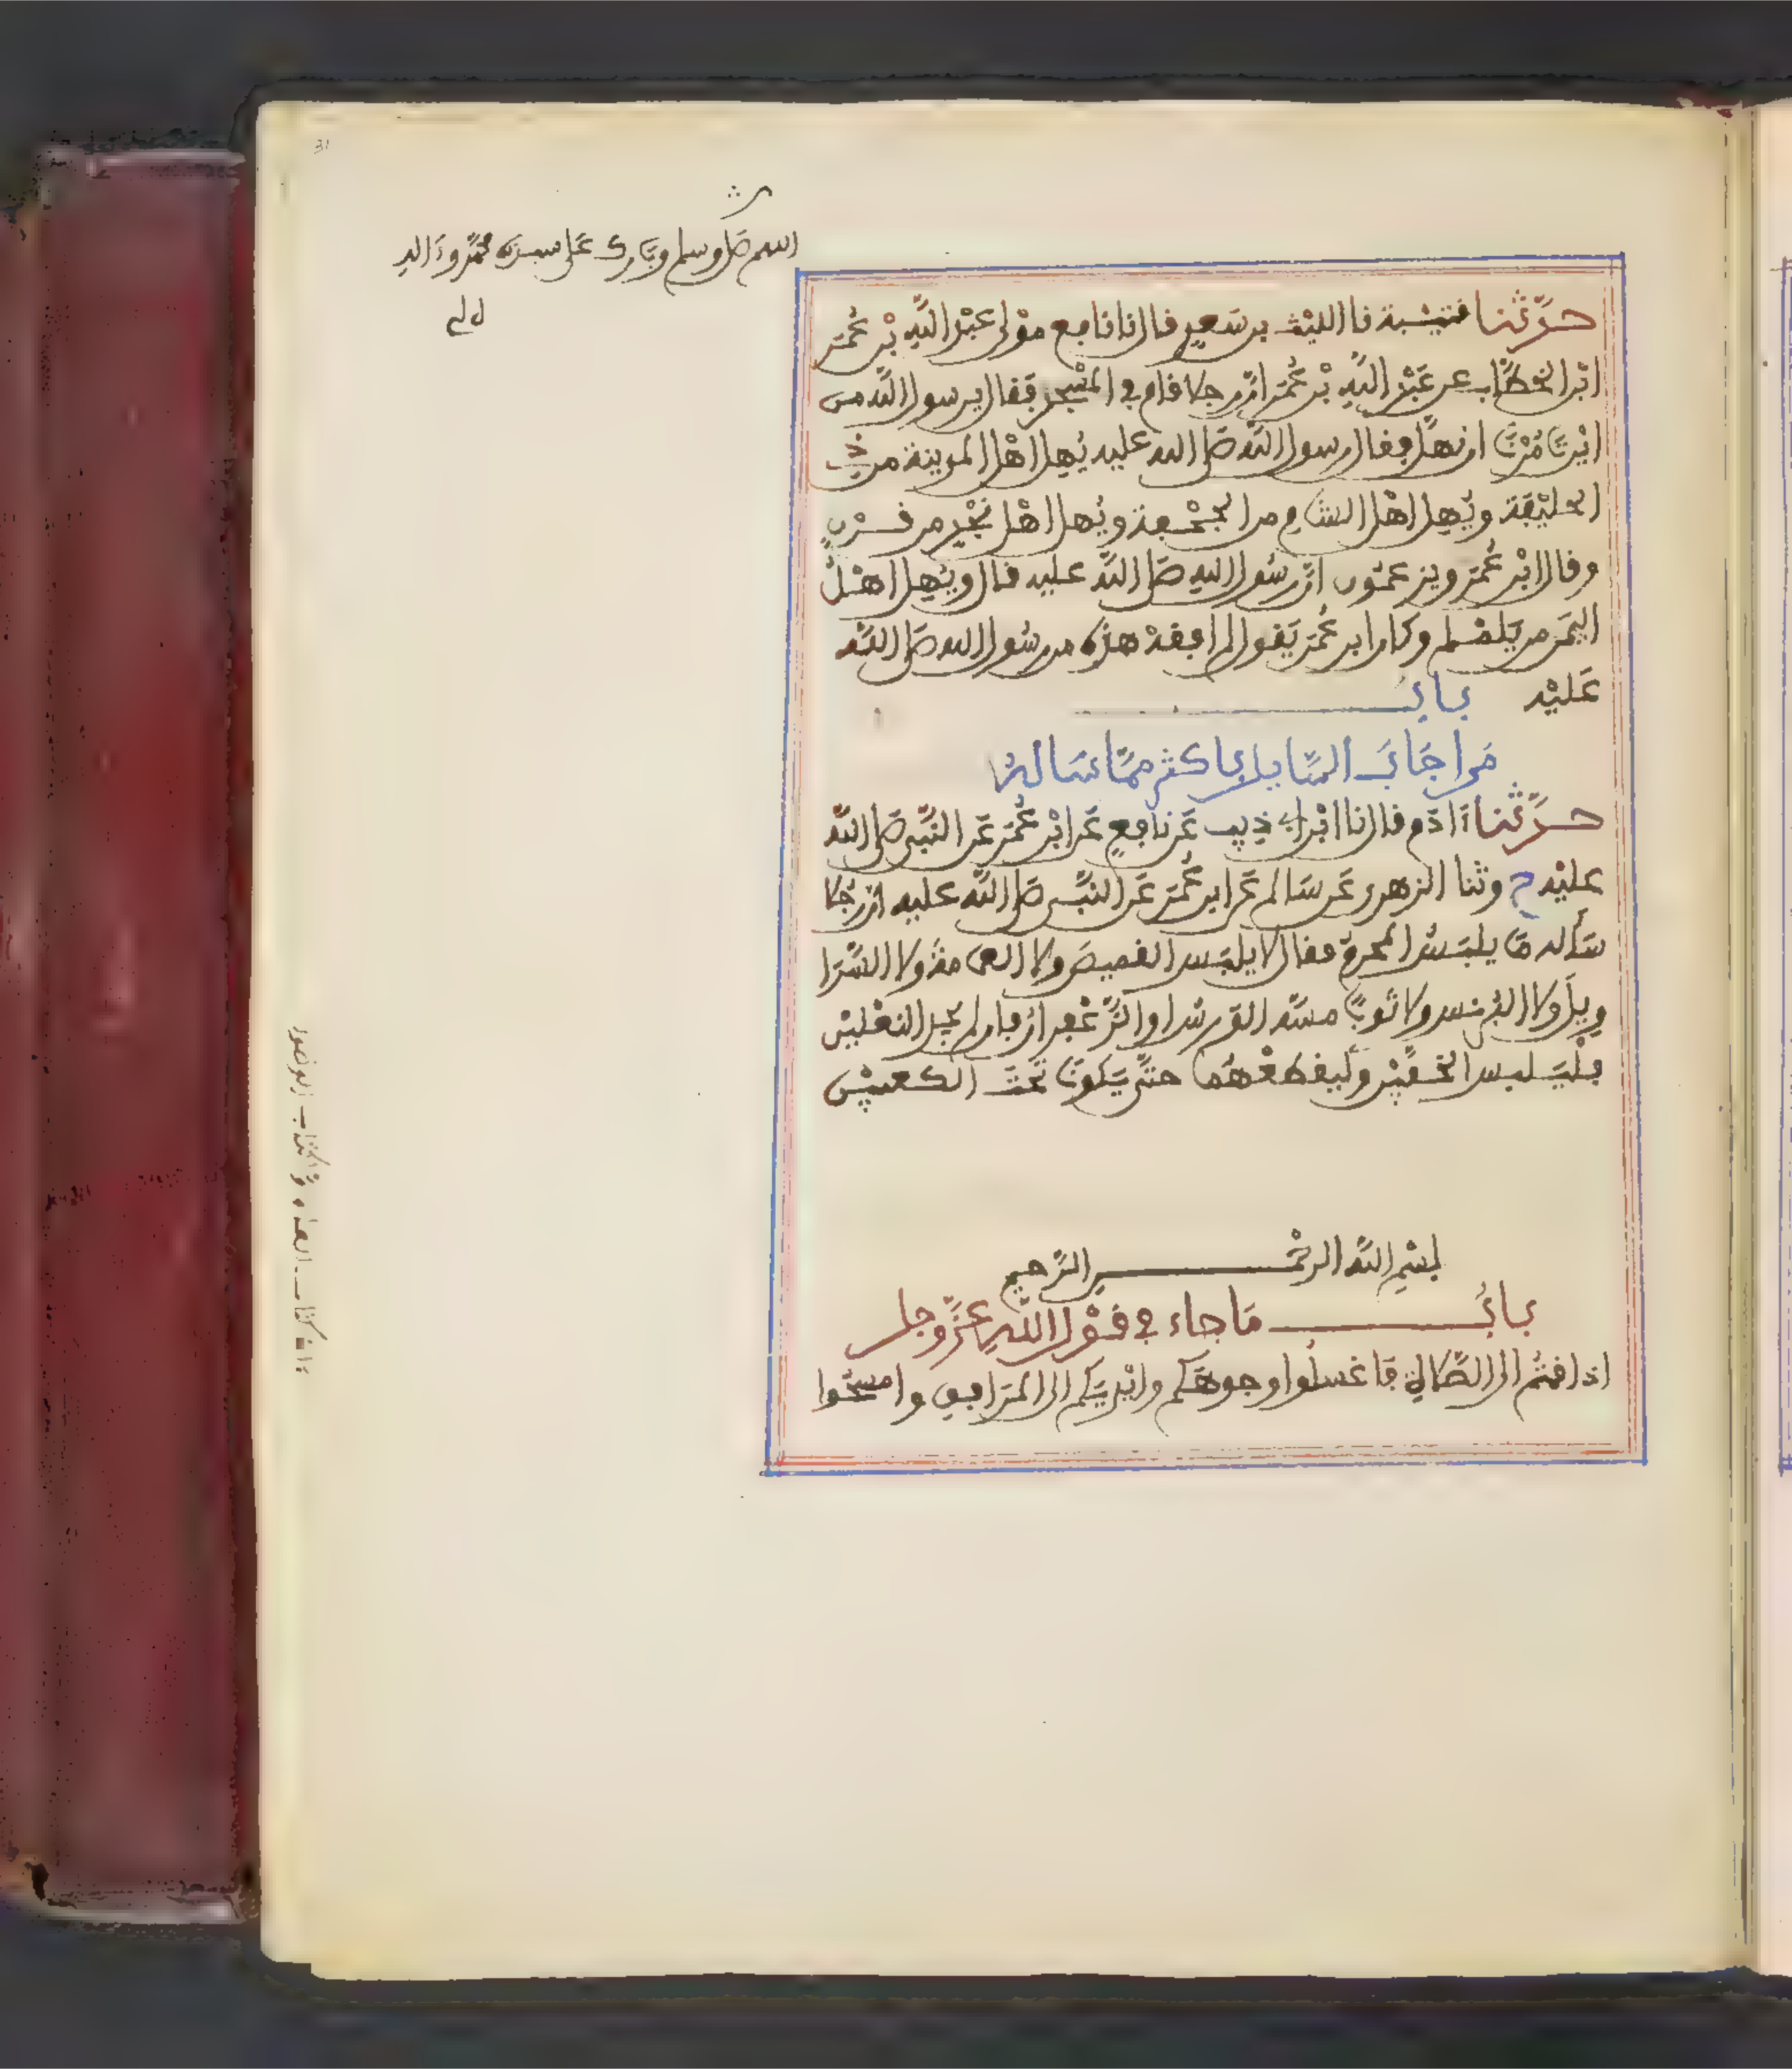 31
اللهم صل وسلم وبارك على سيدنا محمد وءاله
حدَّثنا قتيبة نا الليْث بن سَعيدٍ قال نا نافع موْلى عبْد اللَّهِ بْن عُمَر
ابْن الخطَّاب عن عَبْد اللَّهِ بْن عُمَر أنَّ رجلا قام في المسْجد فقال يرسول اللَّه من
ايْنَ تَامُرْنَا ان نهلَّ فقال رسول اللَّه صَلى الله عليه يُهل اهْل المدينة من ذي
الحليْفة ويُهل اهْل الشام من الجحْفة ويُهل اهْل نجْد من قرْن
وقال ابْن عُمَر ويزعمُون انَّ رسُول الله صَلى اللَّه عليه قال ويُهل اهْلُ
اليمَن من يَلملم وكان ابن عُمَر يَقول لم افقهْ هذه من رسُول الله صَلى اللَّه
عَليْه بابُ
مَن اجَابَ السَّايل باكثر ممَّا سَالهُ
حدَّثنا ءَادَم قال نا ابْن ابي ذيب عَن نافع عَن ابْن عُمَر عَن النَّبي صَلى اللَّه
عليْه ح وثنا الزهري عَن سَالم عَن ابن عُمَر عَن النبَّي صَلى اللَّه عليه انَّ رَجُلا
سَأله مَا يلبَسُ المحرمُ فقال لا يلبَس القميصَ ولا العمامة ولا السَّرَا
ويلَ ولا البُرنس ولا ثوبًا مسَّه الوَرس او الزَّعْفران فان لم يجد النعْليْن
فلْيَلبس الخفَّيْن وليقطعْهُما حتَّى يَكونَا تحْتَ الكعبيْن
بسْم اللَّه الرحْمن الرَّحيم
بابُ مَا جاء في قوْل اللَّهِ عزَّ وجل
اذا قمتُم الى الصَّلاة فَاغسلُوا وجوهكم وايْديَكم الى المرَافق وامسحُوا